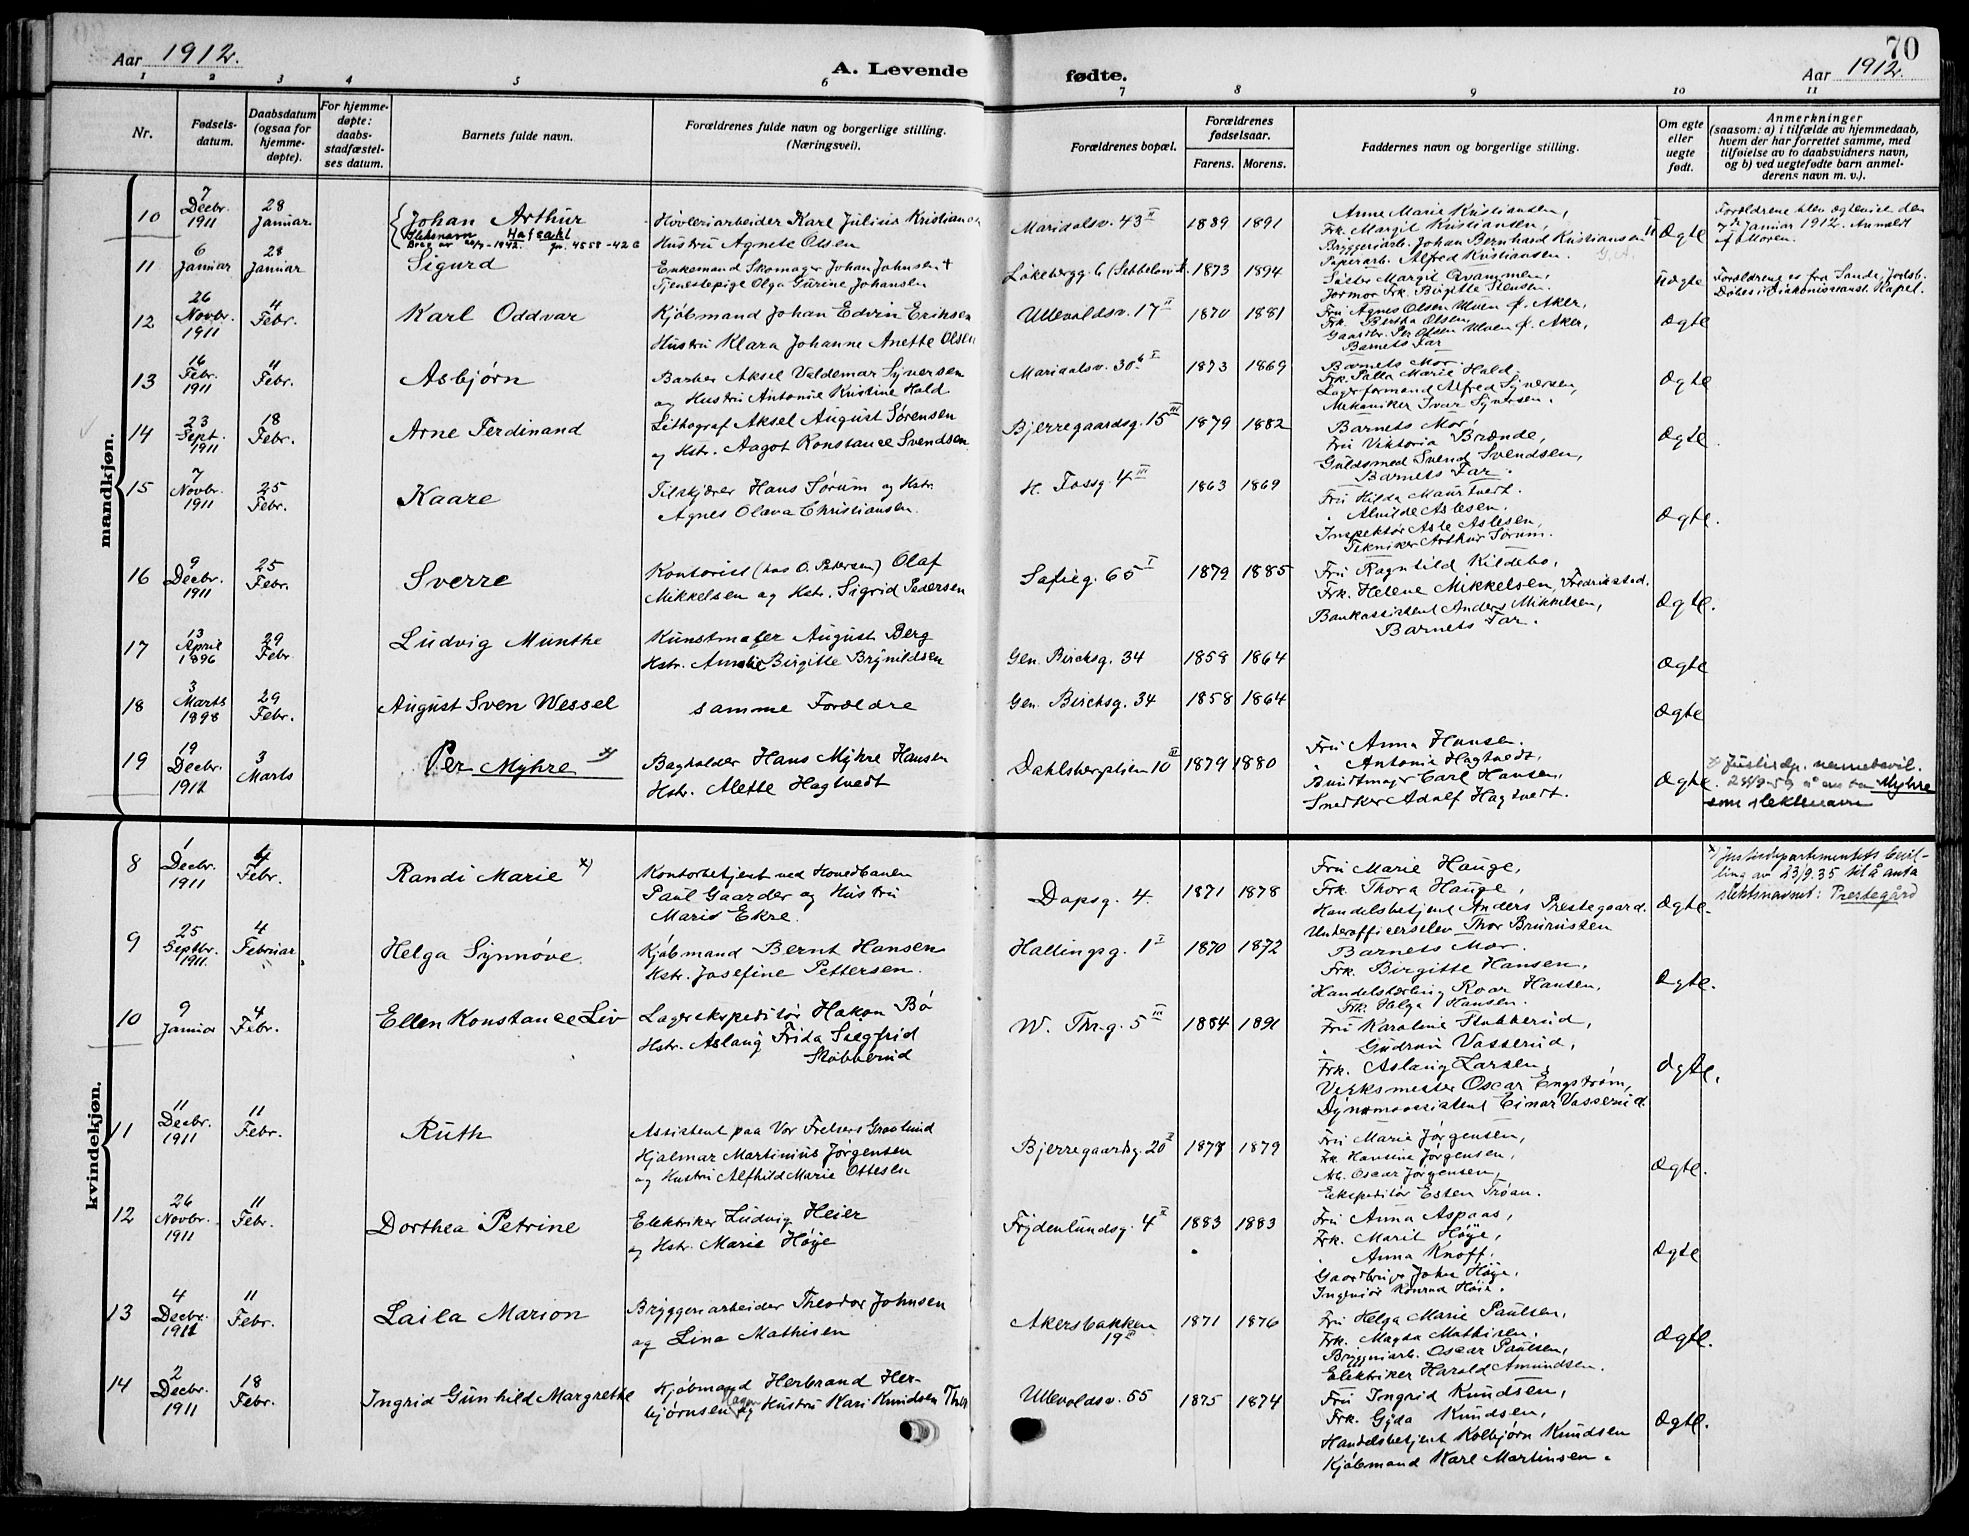 Aar 1912.
A. Levende
fødte.
70
Aar 1912.
1 2 3 4 5 6 7 8 9 10 11
Nr.
Fødsels-
datum.
Daabsdatum
(ogsaa for
hjemme-
døpte).
For hjemme-
døpte:
daabs-
stadfæstel-
ses datum.
Barnets fulde navn.
Forældrenes fulde navn og borgerlige stilling.
(Næringsvei).
Forældrenes bopæl.
Forældrenes
fødselsaar.
Farens. Morens.
Faddernes navn og borgerlige stilling.
Om egte
eller
uegte
født.
Anmerkninger
(saasom: a) i tilfælde av hjemmedaab,
hvem der har forrettet samme, med
tilføielse av to daabsvidners navn,
og b) ved uegtefødte barn anmel-
derens navn m. v.).
mandkjøn.
10
7
Decbr.
1911
28
Januar
Johan Arthur
Slektsnavn Hafsahl
1942. jn. 4558-42 C
Høvleriarbeider Karl Julius Kristiansen
Hustru Agnete Olsen
Maridalsv. 43 II
1889 1891
Anne Marie Kristiansen,
Frk. Margit Kristiansen,
Bryggeriarb. Johan Bernhard Kristiansen
Papirarb. Alfred Kristiansen.
Ægte
Forældrene blev egteviet den
7de Januar 1912. Anmeldt
af Moren.
11
6
Januar
28
Januar
Sigurd
Enkemand Skomager Johan Johnsen +
Tjenestepige Olga Gurine Johansen
Løkebergg. 6
1873 1894
Søster Margit
Jormor Frk. Birgitte Stensen.
Uægte
Forældrene er fra Sande, Jarlsb.
Døbes i Diakonisseanst. Kapel.
12
26
Novbr.
1911
4
Febr.
Karl Oddvar
Kjøbmand Johan Edvin Eriksen
Hustru Klara Johanne Anette Olsen
Ullevoldsv. 17 II
1870 1881
Fru Agnes Olsen Ulven Ø. Aker,
Frk. Bertha Olsen,
Gaardbr. Per Olsen Ulven Ø. Aker,
Barnets Far
Ægte
13
16
Febr.
1911
4
Febr.
Asbjørn
Barber Aksel Valdemar Syversen
og Hustru Antonie Kristine Hald
Maridalsv. 30 b I
1873 1869
Barnets Mor.
Frk. Palla Marie Hald,
Lagerformand Alfred Syversen,
Mekaniker Ivar Syversen.
Ægte
14
23
Sept.
1911
18
Febr.
Arne Ferdinand
Lithograf Aksel August Sørensen
og Hstr. Aagot Konstance Svendsen
Bjerregaardsg. 15 III
1879 1882
Barnets Mor,
Fru Viktoria Brænde,
Guldsmed Svend Svendsen,
Barnets Far.
Ægte.
15
7
Novbr.
1911
25
Febr.
Kaare
Tilskjærer Hans Sørum og Hstr.
Agnes Olava Christiansen.
H. Tossg. 4 III
1863 1869
Fru Hilda Maurtvedt.
" Alvilde Aslesen.
Inspektør Asle Aslesen,
Tekniker Arthur Sørum.
Ægte.
16
9
Decbr.
1911
25
Febr.
Sverre
Kontorist (hos O. Petersen) Olaf
Mikkelsen og Hstr. Sigrid Pedersen
Sofieg. 65 I
1879 1885
Fru Ragnhild Kildebo,
Frk. Helene Mikkelsen, Fredrikstad.
Bankassistent Anders Mikkelsen,
Barnets Far.
Ægte.
17
13
April
1896
29
Febr
Ludvig Munthe
Kunstmaler August Berg
Hstr. Amalie Birgitte Brynildsen
Gen. Birchsg. 34
1858 1864
Ægte
18
3
Marts
1898
29
Febr.
August Sven Wessel
samme Forældre
Gen. Birchsg. 34
1858 1864
Ægte
19
19
Decbr.
1911
3
Marts
Per Myhre x)
Bogholder Hans Myhre Hansen
Hstr. Alette Hagtvedt
Dahlsbergstien 10 III
1879 1880
Fru Anna Hansen.
" Antonie Hagtvedt,
Bundtmager Carl Hansen,
Snedker Adolf Hagtvedt.
Ægte.
x) Justisdp. navnebevil.
Myhre
som slektsnavn
kvindekjøn.
8
1
Decbr.
1911
4
Febr.
Randi Marie x)
Kontorbetjent ved Hovedbanen
Paul Gaarder og Hustru
Marie Ekre.
Dopsg. 4.
1871 1878
Fru Marie Hauge,
Frk. Thora Hauge,
Handelsbetjent Anders Prestegaard.
Underofficerselev Thor Brurusten
Ægte.
x) Justisdepartementets bevil-
ling av 23/9.35 til å anta
slektsnavnet: Prestegård
9
25
Septbr.
1911.
4
Februar
Helga Synnøve
Kjøbmand Bernt Hansen
Hstr. Josefine Pettersen.
Hallingsg. 1 I
1870 1872
Barnets Mor.
Frk. Birgitte Hansen,
Handelslærling Roar Hansen,
Frk. Helga Hansen.
Ægte.
10
9
Januar
4
Febr.
Ellen Konstance Liv
Lagerekspeditør Hakon Bø
Hstr. Aslaug Frida Siegfrid
Stubberud
W. Thr.g. 5 III
1884 1891
Fru Karoline Stubberud,
" Gudrun Vasserud,
Frk. Aslaug Larsen,
Verksmester Oscar Engstrøm,
Dynamoassistent Einar Vasserud.
Ægte.
11
11
Decbr.
1911
11
Febr.
Ruth
Assistent paa Vor Frelsers Gravlund
Hjalmar Martinius Jørgensen
og Hustru Alfhild Marie Ottesen
Bjerregaardsg. 20 II
1878 1879
Fru Marie Jørgensen,
Frk. Hansine Jørgensen,
Arb. Oscar Jørgensen,
Ekspeditør Esten Trøan.
Ægte.
12
26
Novbr.
1911
11
Febr.
Dorthea Petrine
Elektriker Ludvig Heier
og Hstr. Marie Høye
Frydenlundsg. 4 II
1883 1883
Fru Anna Aspaas,
Frk. Marit Høye,
" Anna Knoff.
Gaardbruger John Høye,
Ingeniør Konrad Høie.
Ægte
13
4
Decbr.
1911
11
Febr.
Laila Marion
Bryggeriarbeider Theodor Johnsen
og Lina Mathisen
Akersbakken
19 II
1871 1876
Fru Helga Marie Paulsen,
Frk. Magda Mathisen.
Bryggeriarb. Oscar Paulsen,
Elektriker Harald Amundsen.
Ægte.
14
2
Decbr.
1911
18
Febr.
Ingrid Gunhild Margrethe
Kjøbmand Herbrand Her-
bjørnsen og Hustru Kari Knudsen
Ullevoldsv. 55
1875 1874
Fru Ingrid Knudsen,
Frk. Gyda Knudsen,
Handelsbetjent Kolbjørn Knudsen
Kjøbmand Karl Martinsen.
Ægte.